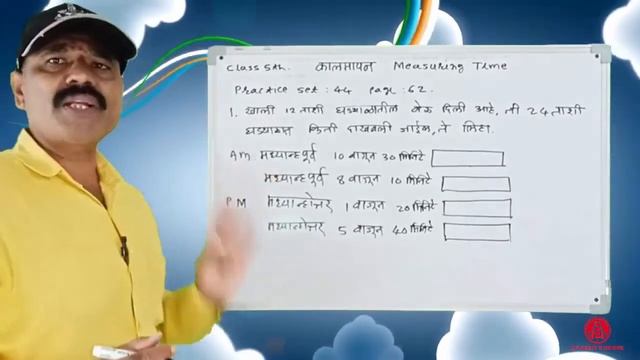 Class 5th. कालमापन Measuring Time
Practice set : 44 page : 62.
1. खाली 12 ताशी घड्याळातील वेळ दिली आहे, ती 24 ताशी
घड्याळात किती दाखवली जाईल, ते लिहा.
AM मध्यान्हपूर्व 10 वाजून 30 मिनिटे
मध्यान्हपूर्व 8 वाजून 10 मिनिटे
PM मध्यान्होत्तर 1 वाजून 20 मिनिटे
मध्यान्होत्तर 5 वाजून 40 मिनिटे